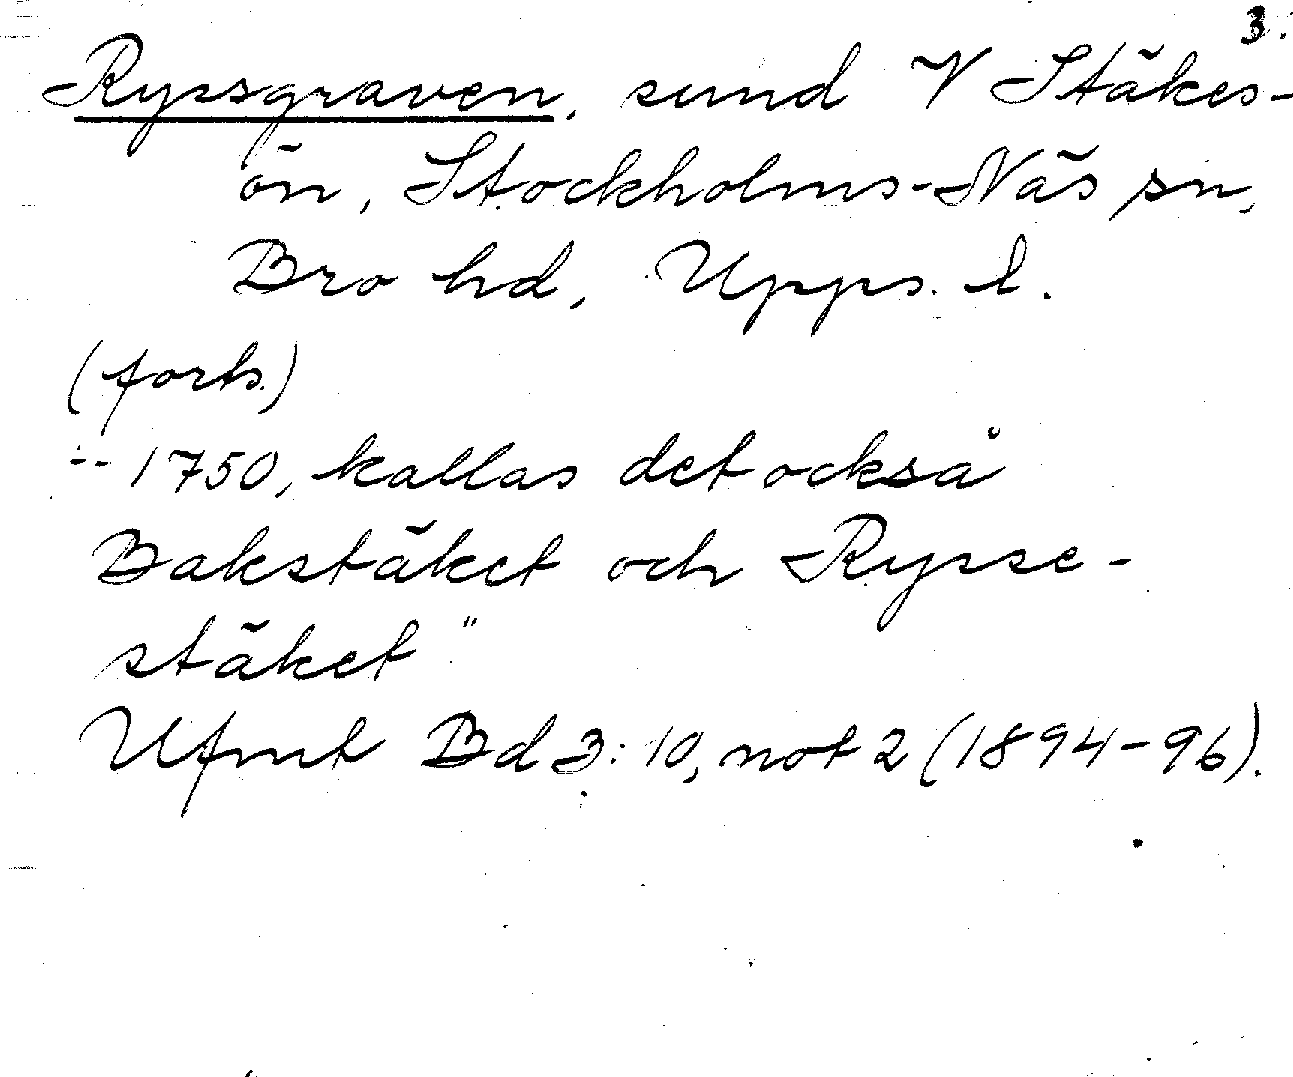 3.
Ryssgraven, sund V Stäkes-
ön, Stockholms-Näs sn,
Bro hd, Upps. l.
(forts.)
-- 1750, kallas det också
Bakstäket och Rysse-
stäket"
Ufmt Bd 3:10, not 2 (1894-96).